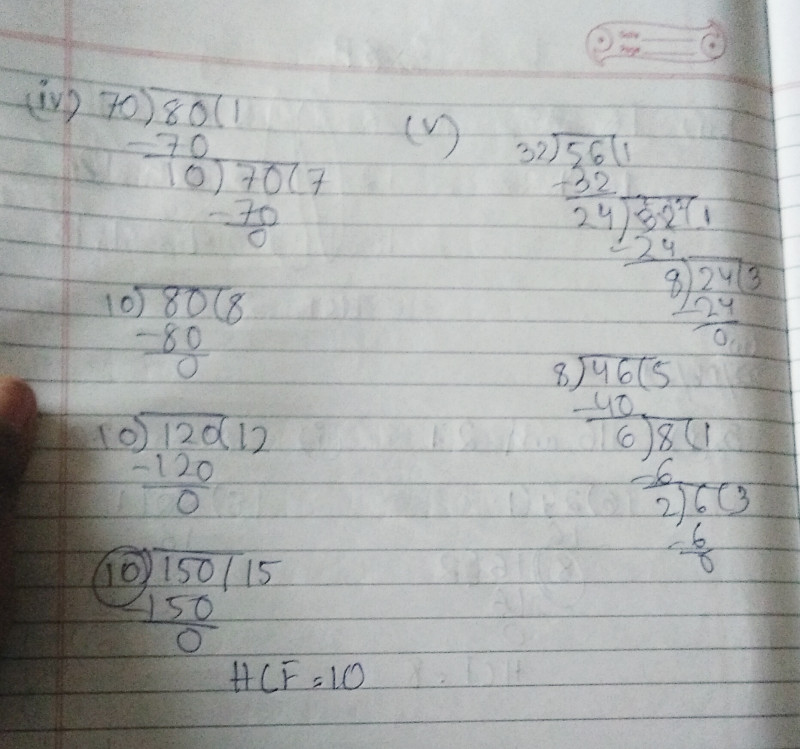 Date
Page
(iv) 70) 80 (1
-70
10) 70 (7
-70
0
10) 80 (8
-80
0
10) 120 (12
-120
0
10) 150 ( 15
-150
0
HCF = 10
(v)
32) 56 (1
-32
24) 32 (1
-24
8) 24 (3
-24
0
8) 46 (5
-40
6) 8 (1
-6
2) 6 (3
-6
0